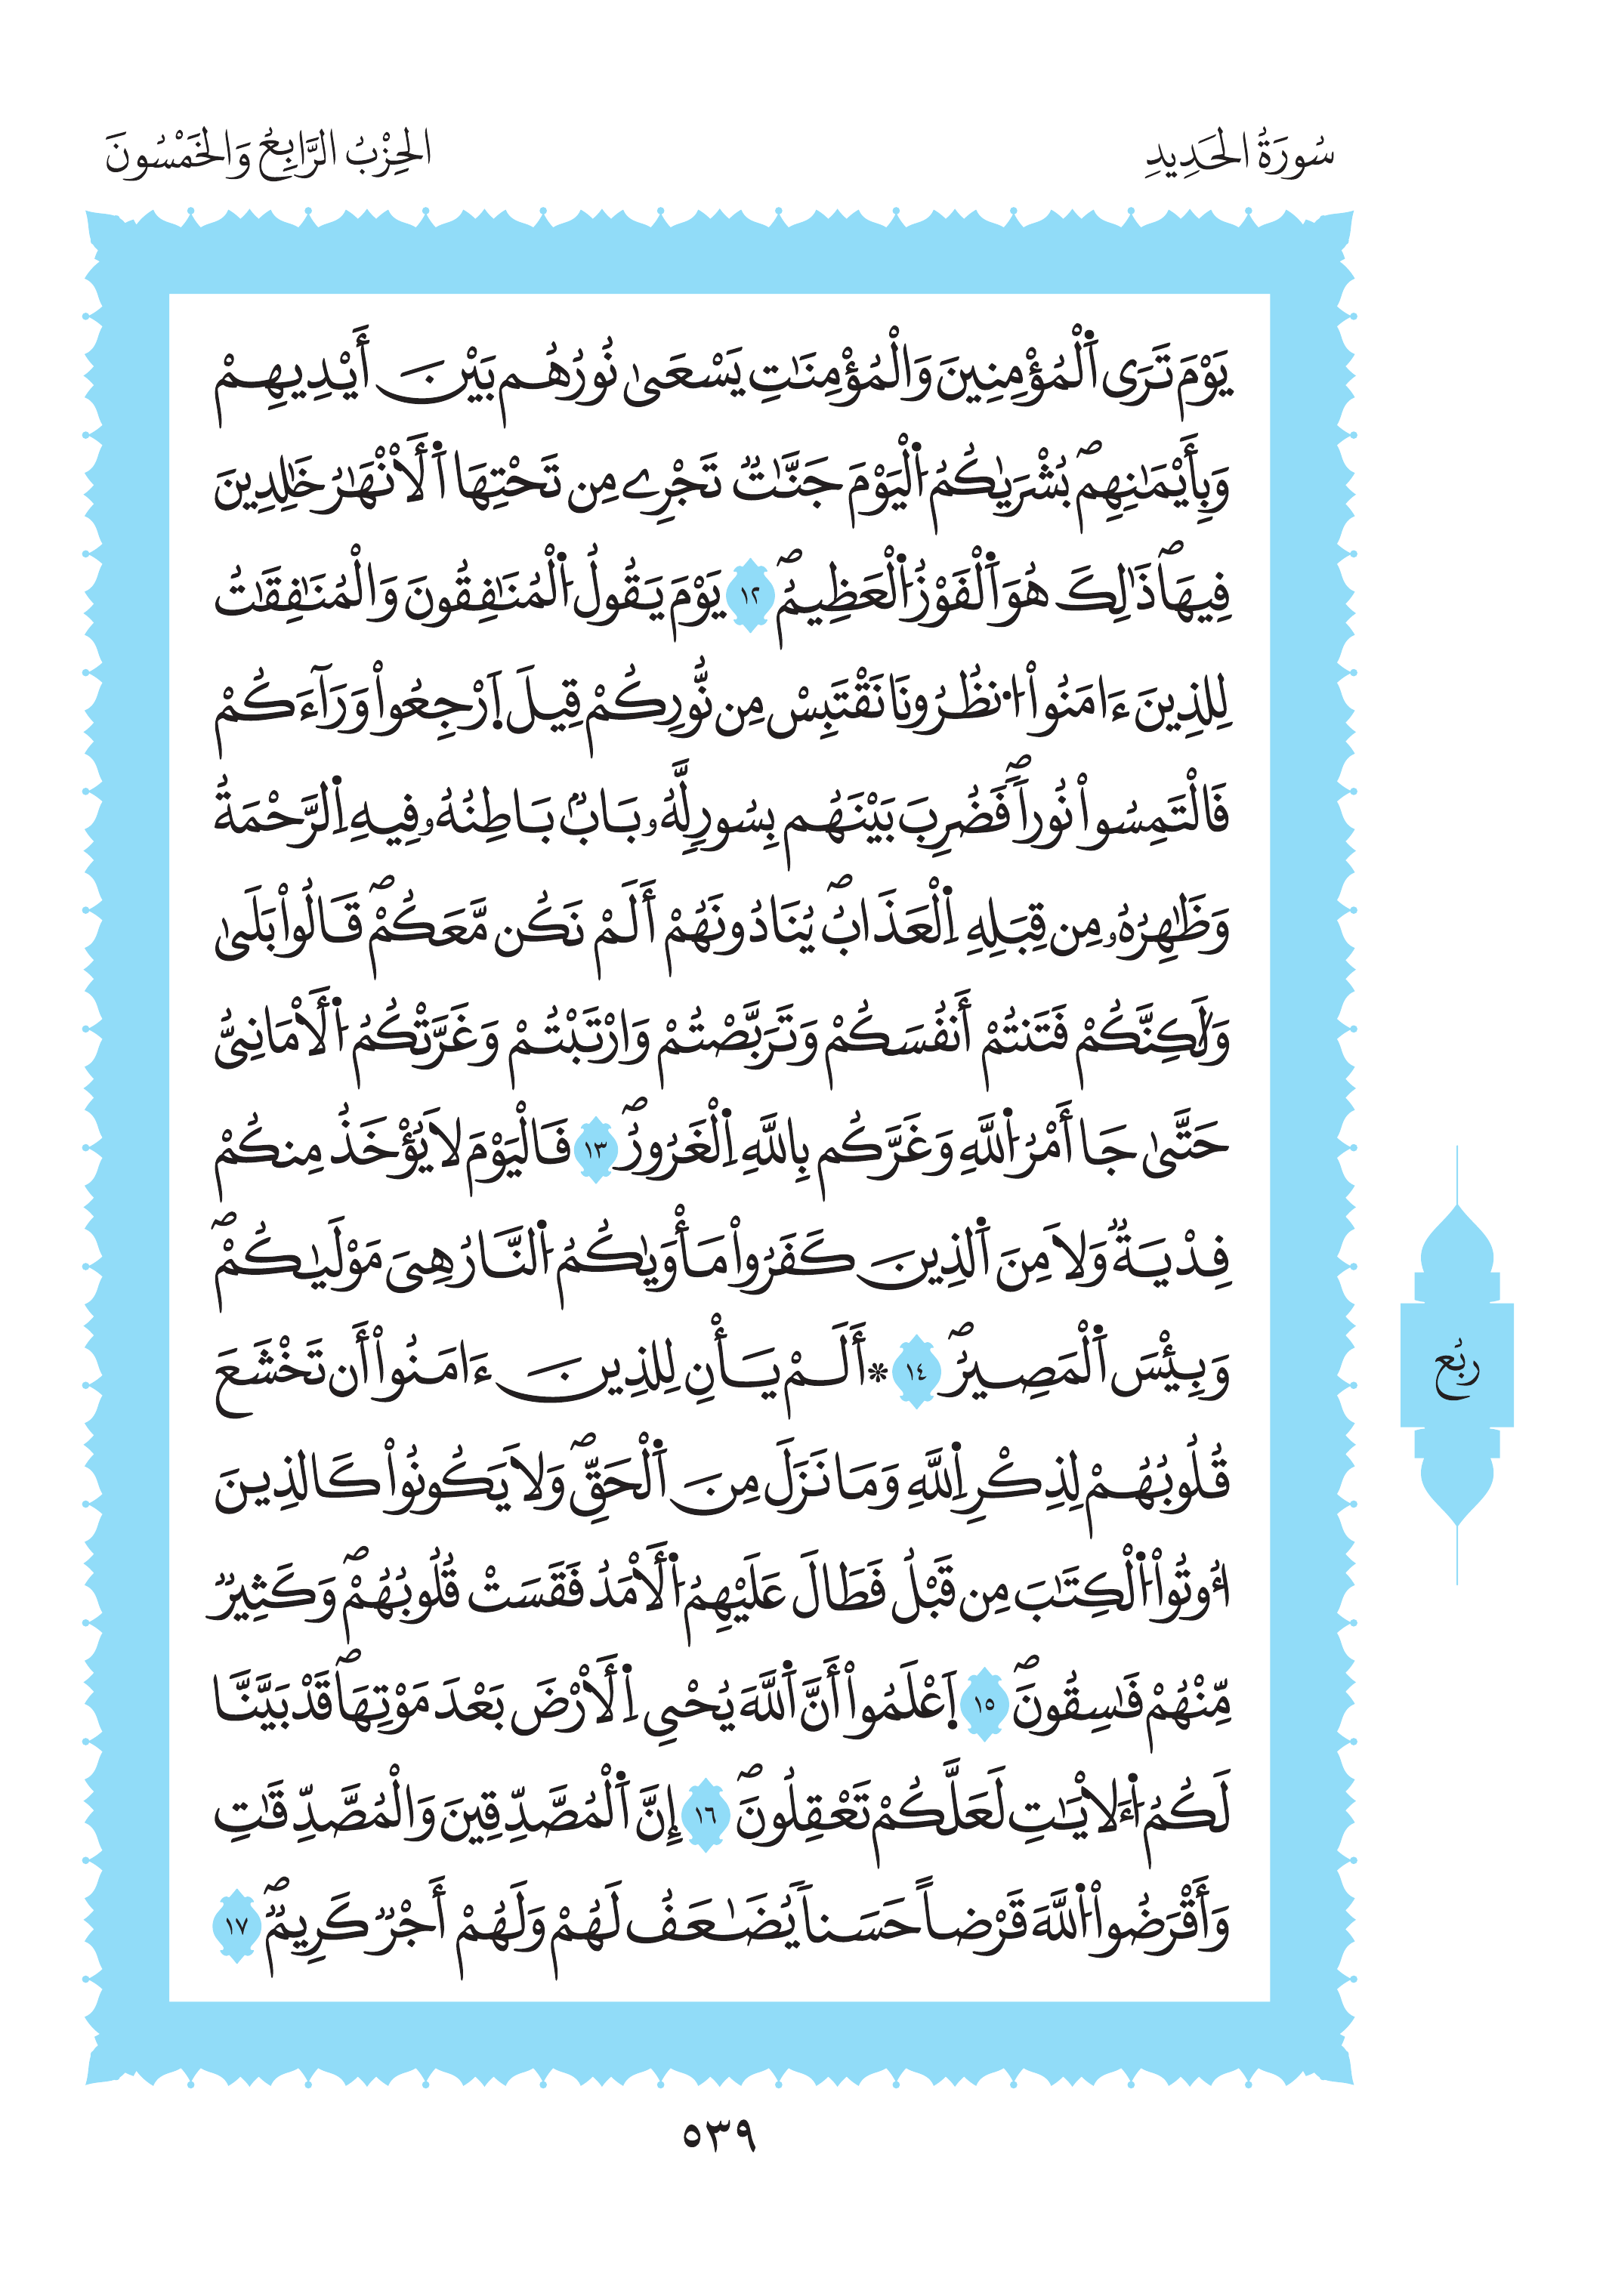 سُورَةُ الحَدِيدِ
الحِزْبُ الرَّابِعُ وَالخَمْسُونَ
يَوْمَ تَرَى اَ۬لْمُؤْمِنِينَ وَالْمُؤْمِنَٰتِ يَسْعَىٰ نُورُهُم بَيْنَ أَيْدِيهِمْ
وَبِأَيْمَٰنِهِمۖ بُشْرَيٰكُمُ اُ۬لْيَوْمَ جَنَّٰتٞ تَجْرِے مِن تَحْتِهَا اَ۬لَانْهَٰرُ خَٰلِدِينَ
فِيهَاۖ ذَٰلِكَ هُوَ اَ۬لْفَوْزُ اُ۬لْعَظِيمُۖ ١٢ يَوْمَ يَقُولُ اُ۬لْمُنَٰفِقُونَ وَالْمُنَٰفِقَٰتُ
لِلذِينَ ءَامَنُواْ اُ۟نظُرُونَا نَقْتَبِسْ مِن نُّورِكُمْ قِيلَ اَ۪رْجِعُواْ وَرَآءَكُمْ
فَالْتَمِسُواْ نُوراٗۖ فَضُرِبَ بَيْنَهُم بِسُورٖ لَّهُۥ بَابُۢ بَاطِنُهُۥ فِيهِ اِ۬لرَّحْمَةُ
وَظَٰهِرُهُۥ مِن قِبَلِهِ اِ۬لْعَذَابُۖ يُنَادُونَهُمْ أَلَمْ نَكُن مَّعَكُمْۖ قَالُواْ بَلَىٰ
وَلَٰكِنَّكُمْ فَتَنتُمْ أَنفُسَكُمْ وَتَرَبَّصْتُمْ وَارْتَبْتُمْ وَغَرَّتْكُمُ اُ۬لَامَانِيُّ
حَتَّىٰ جَا أَمْرُ اُ۬للَّهِ وَغَرَّكُم بِاللَّهِ اِ۬لْغَرُورُۖ ١٣ فَالْيَوْمَ لَا يُؤْخَذُ مِنكُمْ
فِدْيَةٞ وَلَا مِنَ اَ۬لذِينَ كَفَرُواْ مَأْوَيٰكُمُ اُ۬لنَّارُ هِيَ مَوْلَيٰكُمْۖ
وَبِيسَ اَ۬لْمَصِيرُۖ ١٤ ۞ أَلَمْ يَأْنِ لِلذِينَ ءَامَنُواْ أَن تَخْشَعَ
قُلُوبُهُمْ لِذِكْرِ اِ۬للَّهِ وَمَا نَزَلَ مِنَ اَ۬لْحَقِّۖ وَلَا يَكُونُواْ كَالذِينَ
اُوتُواْ اُ۬لْكِتَٰبَ مِن قَبْلُ فَطَالَ عَلَيْهِمُ اُ۬لَامَدُ فَقَسَتْ قُلُوبُهُمْۖ وَكَثِيرٞ
مِّنْهُمْ فَٰسِقُونَۖ ١٥ اَ۪عْلَمُواْ أَنَّ اَ۬للَّهَ يُحْيِ اِ۬لَارْضَ بَعْدَ مَوْتِهَاۖ قَدْ بَيَّنَّا
لَكُمُ اُ۬لَايَٰتِ لَعَلَّكُمْ تَعْقِلُونَۖ ١٦ إِنَّ اَ۬لْمُصَّدِّقِينَ وَالْمُصَّدِّقَٰتِ
وَأَقْرَضُواْ اُ۬للَّهَ قَرْضاً حَسَناٗ يُضَٰعَفُ لَهُمْ وَلَهُمْ أَجْرٞ كَرِيمٞۖ ١٧
ربُع
٥٣٩